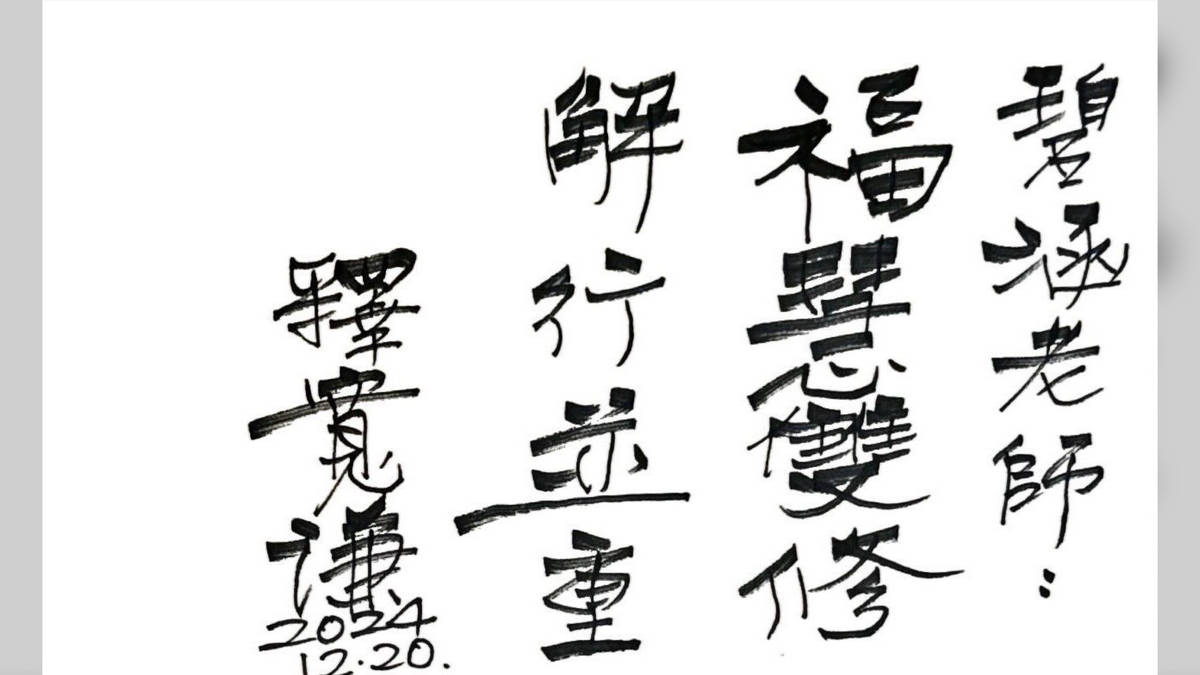 碧涵老師：
福慧雙修
解行並重
釋寬謙
2024
12.20.